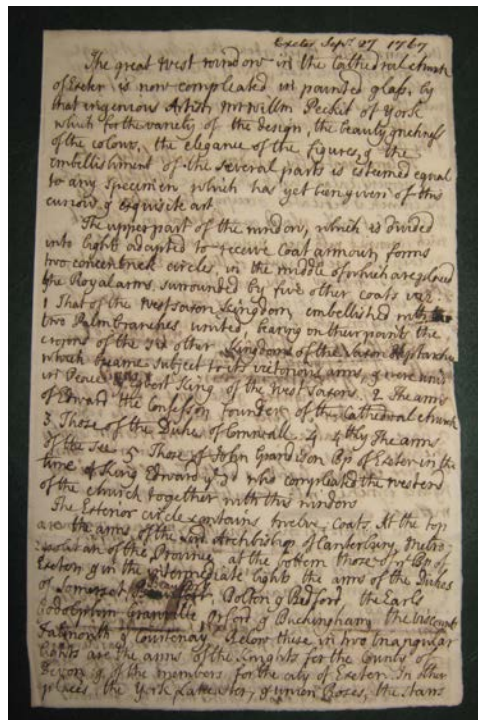 Exeter Sepr. 27 1767
The great west window in the Cathedral church
of Exeter is now compleated in painted glass, by
that ingenious Artist Mr Willm Peckit of York
which for the variety of the design, the beauty & richness
of the colours, the elegance of the figures, & the
embellishment of the several parts is esteemed equal
to any specimen which has yet been given of this
curious & exquisite art
The upper part of the window, which is divided
into lights adapted to receive Coat armour, forms
two concentrick circles, in the middle of which are placed
the Royal arms, surrounded by five other coats viz.
1 That of the West saxon Kingdom, embellished with
two Palm branches united, bearing on their point the
crowns of the six other Kingdoms of the Saxon Heptarchy
which became subject to its victorious arms, & were
in Peace Egbert King of the West Saxons. 2 The arms
of Edward the Confessor founder of the Cathedral church
3 Those of the Dukes of Cornwall 4 4thly The arms
of the see. 5 Those of John Grandison Bp of Exeter in the
time of King Edward ye 3d who compleated the west end
of the church together with this window
The Exterior circle contains twelve Coats. At the top
are the arms of the Lord Archbishop of Canterbury, Metro-
politan of the Province, at the bottom those of ye Bp of
Exeter & in the intermediate lights the arms of the Dukes
of Somerset Bolton & Bedford the Earls
Godolphin Granville Orford & Buckingham, the Viscounts
Falmouth & Courtenay. Below these in two triangular
lights are the arms of the Knights for the County of
Devon & of the members for the city of Exeter. In other
places the York, Lancaster, & union Roses, the stars